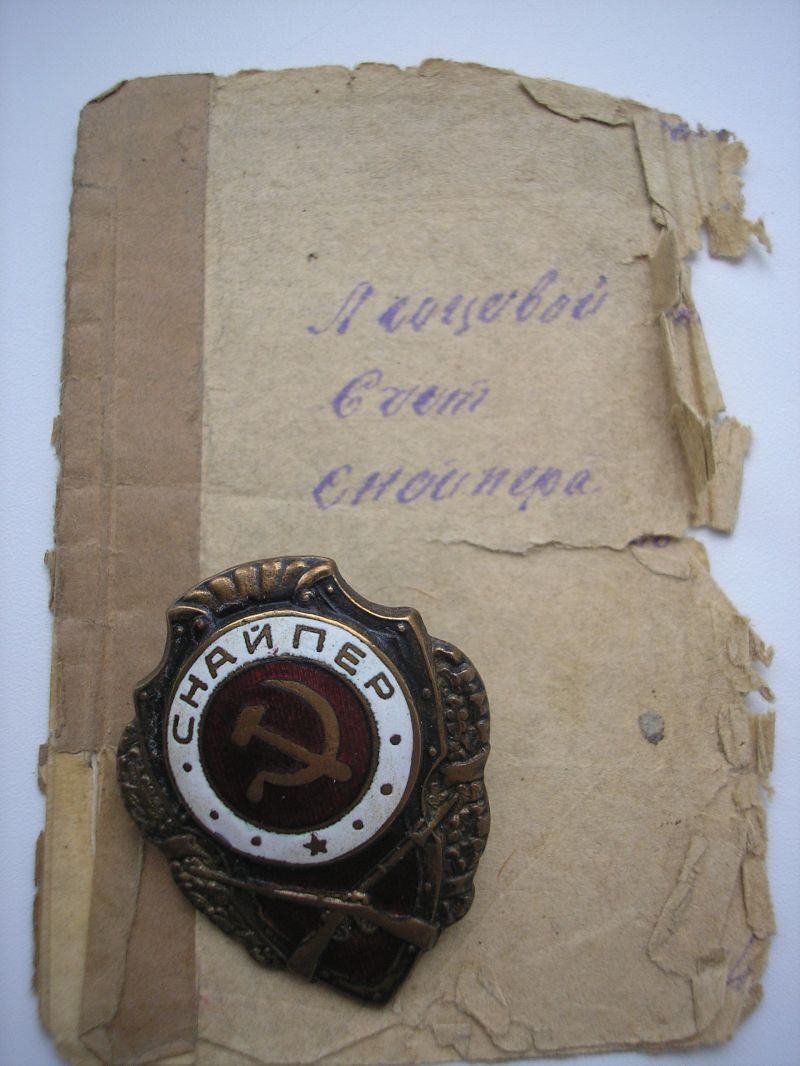 Лицевой
Счет
снайпера
СНАЙПЕР